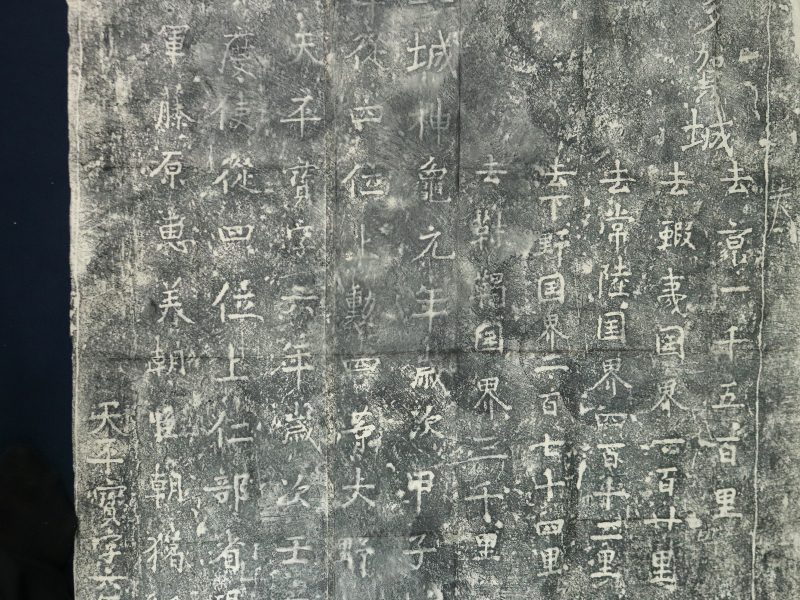 多賀城
去京一千五百里
去蝦夷国界一百廿里
去常陸国界四百十二里
去下野国界二百七十四里
去靺鞨国界三千里
城神龜元年歳次甲子
從四位上勳四等大野
天平寳字六年歳次壬
度使從四位上仁部省
軍藤原恵美朝臣朝獦
天平寳字六